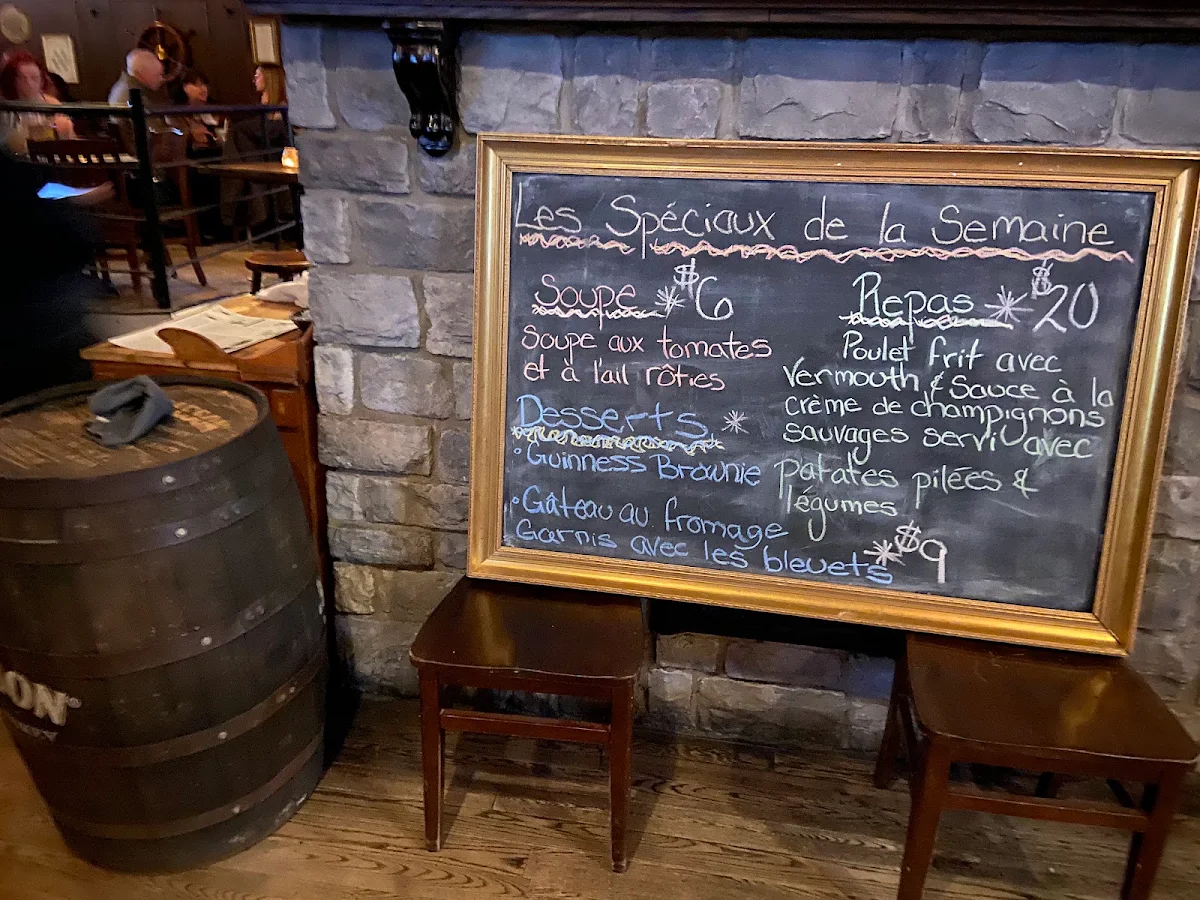 Les Spéciaux de la Semaine
Soupe $6
Soupe aux tomates
et à l'ail rôties
Desserts
• Guinness Brownie
• Gâteau au fromage
Garnis avec les bleuets $9
Repas $20
Poulet frit avec
Vermouth & Sauce à la
crème de champignons
sauvages servi avec
patates pilées &
légumes
ON®